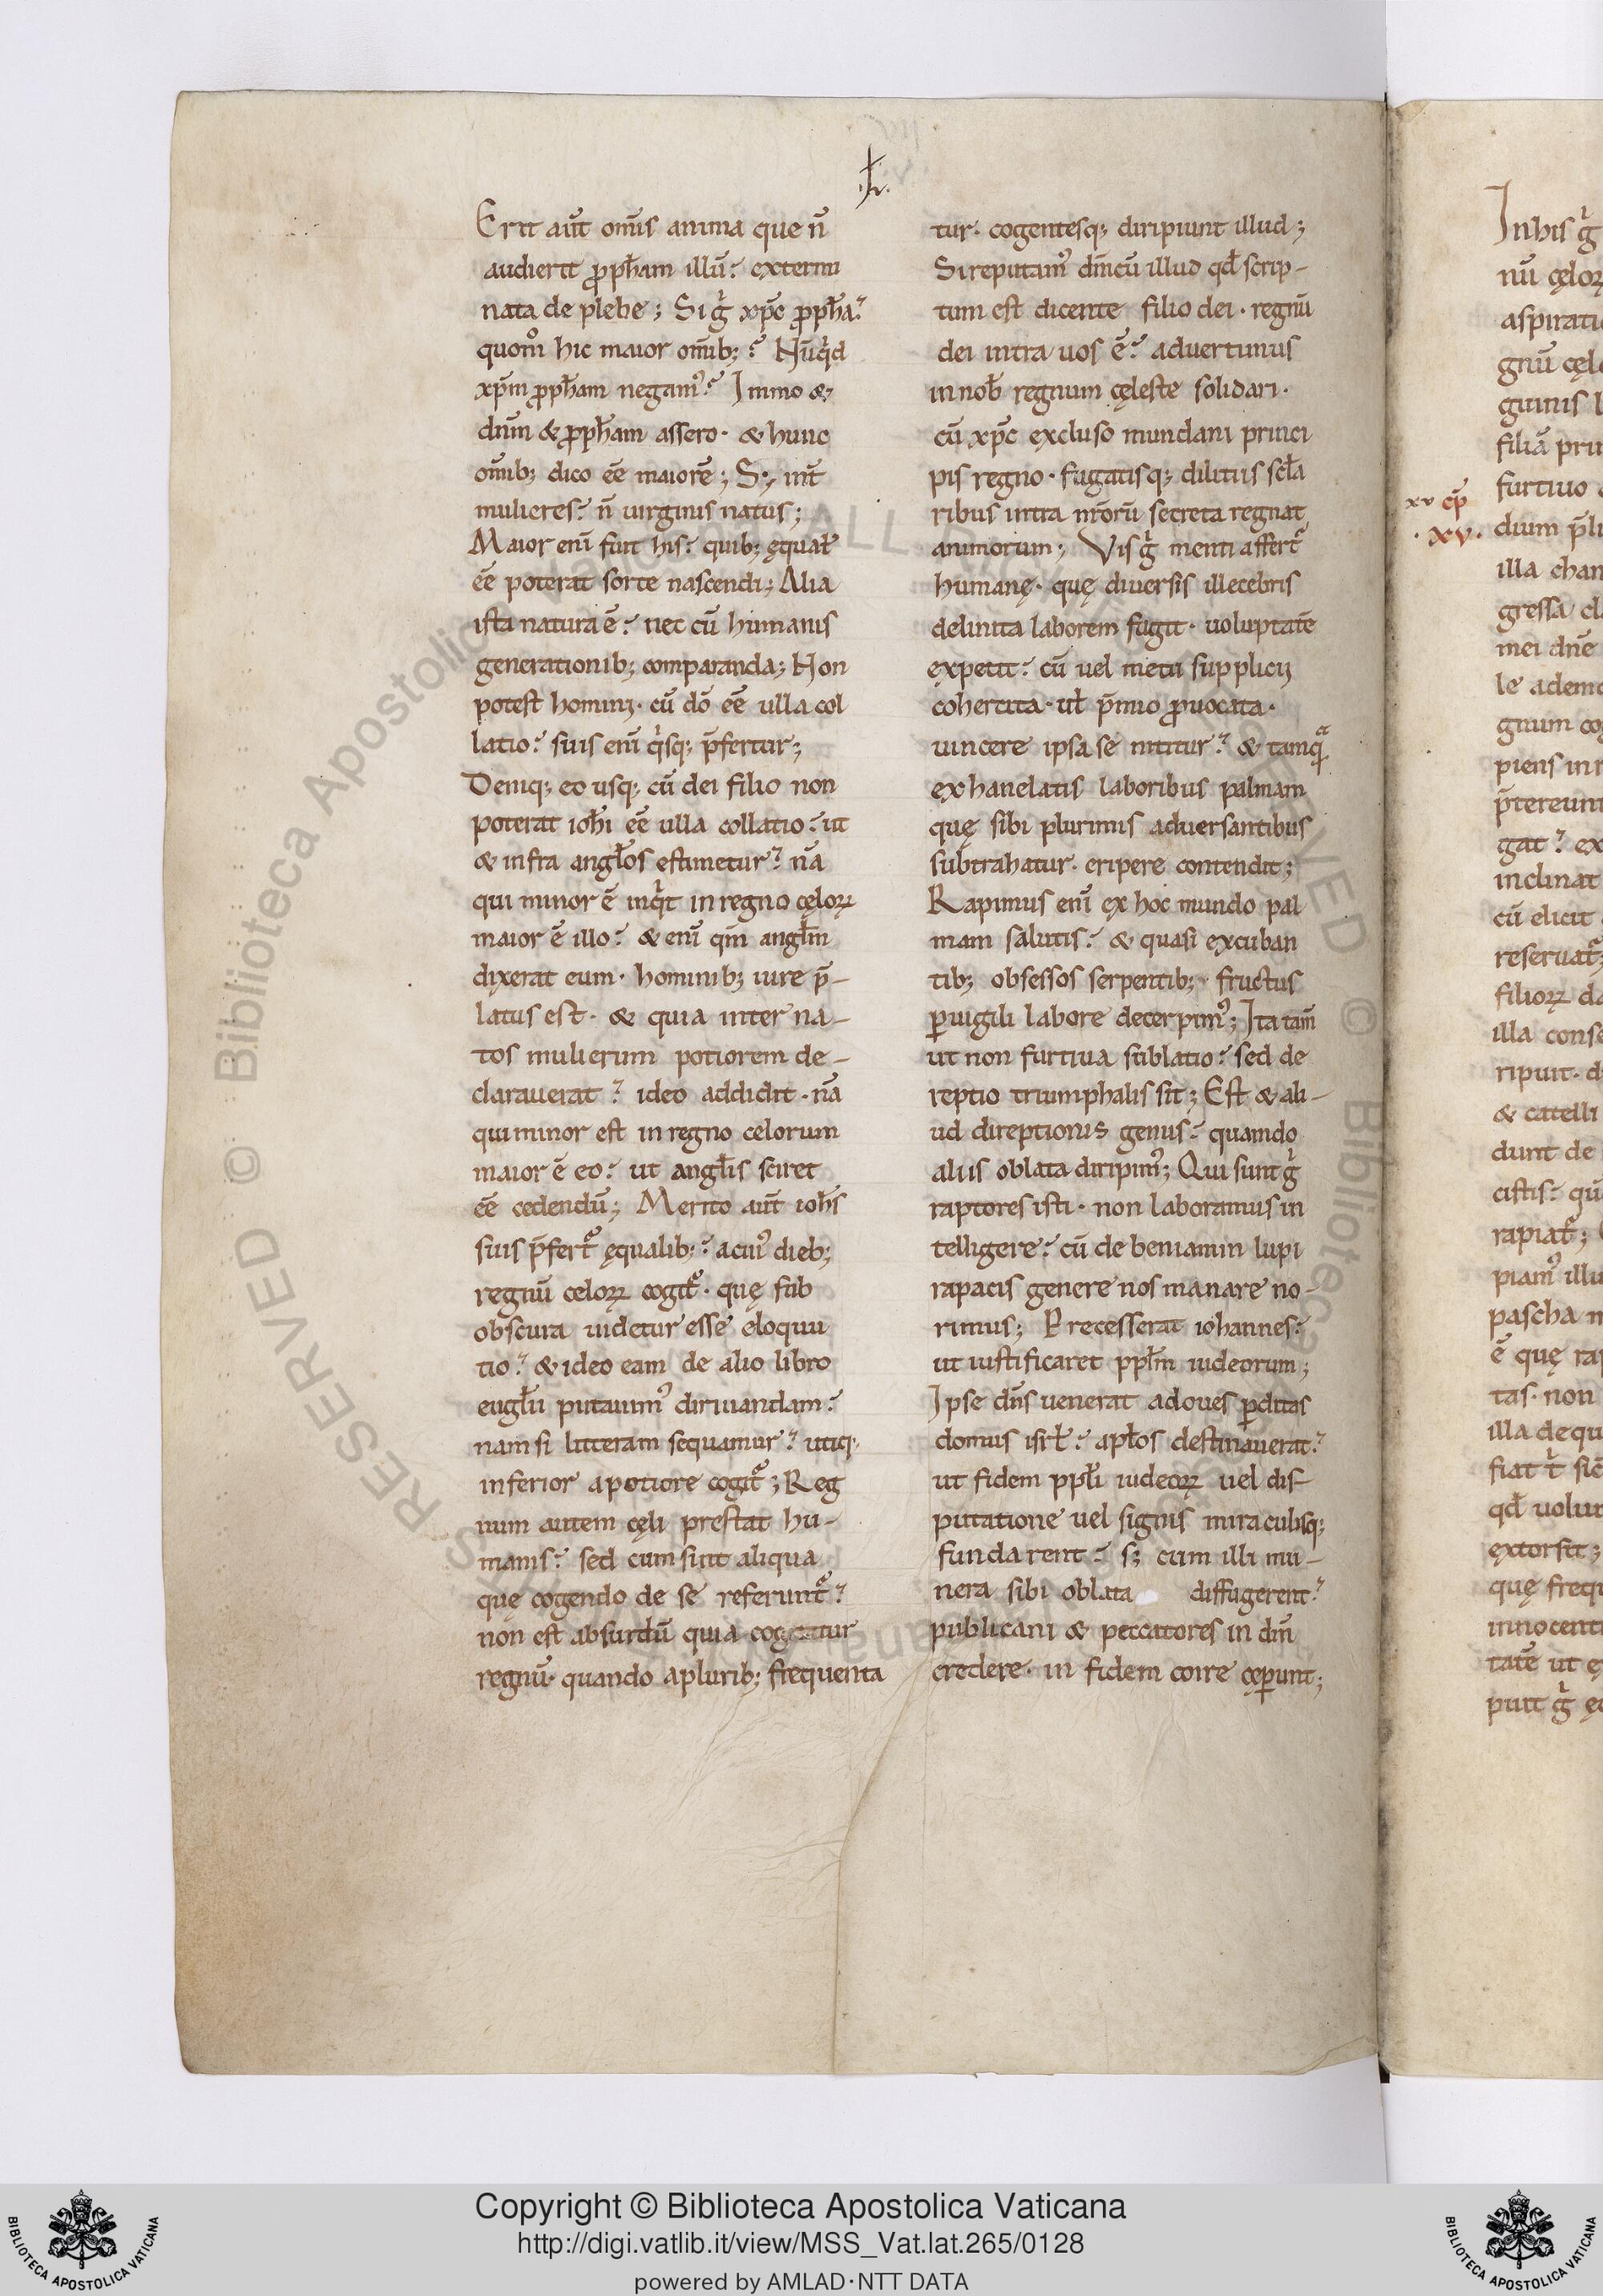 Erit aūt om̄is anima que n̄
audierit ꝓph̄am illū? extermi
nata de plebe; Si g̊ xp̄c ꝓph̄a?
quom̊ hic maior om̄ib;? Nūqͥd
xp̄m ꝓph̄am negamꝰ? Immo &
dn̄m & ꝓph̄am assero· & hunc
om̄ib; dico eē maiorē; S; int̄
mulieres? n̄ uirginis natus;
Maior eni fuit his? quib; ęqual̄
eē poterat sorte nascendi; Alia
ista natura ē? nec cū humanis
generationib; comparanda; Non
potest homini· cū dō eē ulla col
latio? suis eni qͥsq; p̄fertur;
Deniq; eo usq; cū dei filio non
poterat ioh̄i eē ulla collatio? ut
& infra angl̄os estimetur? nā
qui minor ē inqͥt in regno cęloꝝ
maior ē illo? & eni qm̄ angl̄m
dixerat eum· hominib; iure p̄-
latus est· & quia inter na-
tos mulierum potiorem de-
clarauerat? ideo addidit· nā
qui minor est in regno celorum
maior ē eo? ut angl̄is sciret
eē cedendū; Merito aūt ioh̄s
suis p̄fert᷑ ęqualib;? a cuiꝰ dieb;
regnū celoꝝ cogit᷑· quę sub
obscura uidetur esse eloquu
tio? & ideo eam de alio libro
eugl̄ii putauimꝰ diriuandam?
nam si litteram sequamur? utiq;
inferior a potiore cogit᷑; Reg
num autem cęli prestat hu-
manis? sed cum sint aliqua
quę cogendo de se referunt᷑?
non est absurdū quia cogeatur
regnū· quando a plurib; frequenta
tur? cogentesq; diripiunt illud;
Si reputamꝰ dn̄icū illud qd̄ scrip-
tum est dicente filio dei· regnū
dei intra uos ē? aduertimus
in nob̄ regnum cęleste solidari·
cū xp̄c excluso mundani princi
pis regno· fugatisq; dilitiis sc̄la
ribus intra nr̄orū secreta regnat
animorum; Vis g̊ menti affert᷑
humanę· quę diuersis illecebris
delinita laborem fugit· uoluptatē
expetit? cū uel metu supplicij
cohercita· ul̄ p̄mio ꝓuocata·
uincere ipsa se nititur? & tamqͣ
exhanelatis laboribus palmam
quę sibi plurimis aduersantibus
subtrahatur· eripere contendit;
Rapimus eni ex hoc mundo pal
mam salutis? & quasi excuban
tib; obsessos serpentib;· fructus
ꝑuigili labore decerpimꝰ; Ita tam̄
ut non furtiua sublatio? sed de
reptio triumphalis sit; Est & ali-
ud direptionis genus? quando
aliis oblata diripimꝰ; Qui sunt g̊
raptores isti· non laboramus in
telligere? cū de beniamin lupi
rapacis genere nos manare no-
rimus; Precesserat iohannes?
ut iustificaret ppl̄m iudeorum;
Ipse dn̄s uenerat ad oues ꝑditas
domus isrl̄? apl̄os destinauerat?
ut fidem ppl̄i iudeoꝝ uel dis-
putatione uel signis miraculisq;
fundarent? s; cum illi mu-
nera sibi oblata diffugerent?
publicani & peccatores in dn̄
credere· in fidem coire cęꝑunt;
In his g̊
nū cęloꝝ
aspirati
gnū cęl
guinis
filiā pri
furtiuo
xv cp̄
·xv·
dium p̄l
illa chan
gressa
mei dn̄e
le adem
gnum co
piens in
p̄tereunt
gat? ex
inclinat
cū elicit
reseruat᷑;
filioꝝ da
illa cons
ripuit· d
& catelli
dunt de
cistis? qū
rapiat᷑;
piamꝰ illu
pascha
ē quę ra
tas· non
illa de qu
fiat t̄ sic̄
qd̄ uolun
extorsit;
quę frequ
innocent
tatē ut
puit g̊
Copyright © Biblioteca Apostolica Vaticana
http://digi.vatlib.it/view/MSS_Vat.lat.265/0128
powered by AMLAD·NTT DATA
BIBLIOTECA APOSTOLICA VATICANA
BIBLIOTECA APOSTOLICA VATICANA